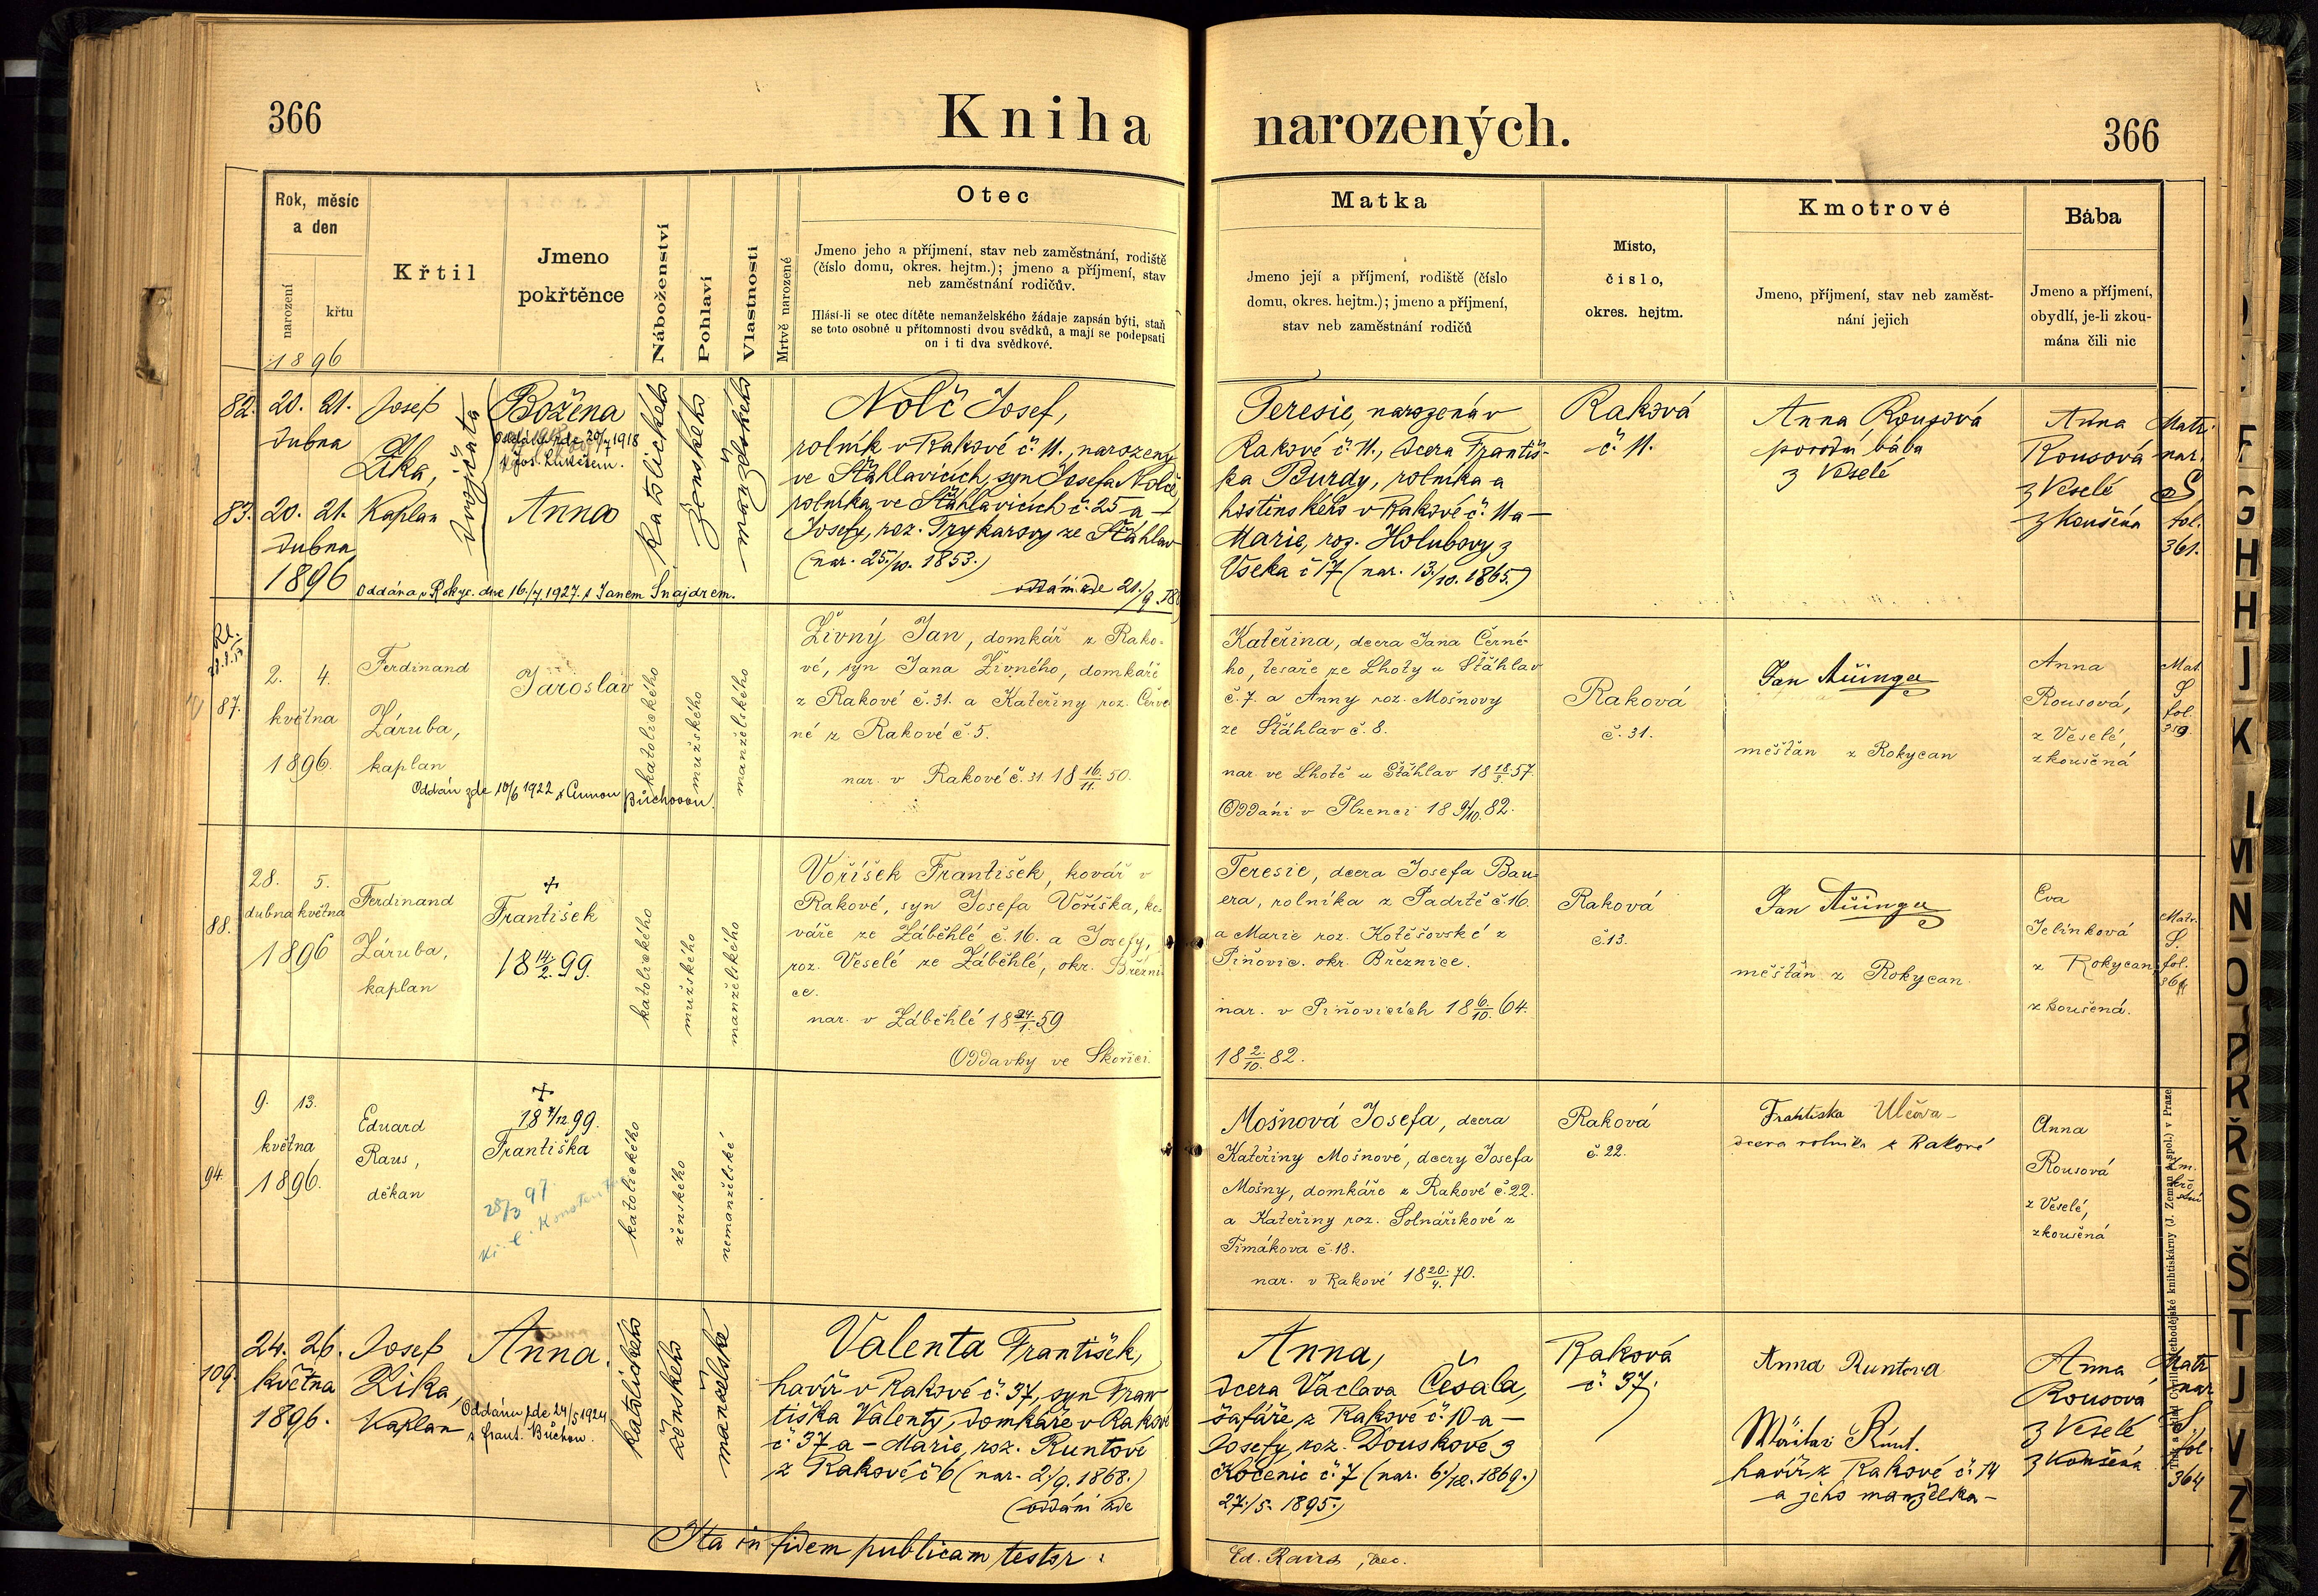 366
Kniha
narozených.
366
Rok, měsíc
a den
narození
křtu
1896
Křtil
Jmeno
pokřtěnce
Náboženství
Pohlaví
Vlastnosti
Mrtvě narozené
Otec
Jmeno jeho a příjmení, stav neb zaměstnání, rodiště
(číslo domu, okres. hejtm.); jmeno a příjmení, stav
neb zaměstnání rodičův.
Hlásí-li se otec dítěte nemanželského žádaje zapsán býti, staň
se toto osobně u přítomnosti dvou svědků, a mají se podepsati
on i ti dva svědkové.
Matka
Jmeno její a příjmení, rodiště (číslo
domu, okres. hejtm.); jmeno a příjmení,
stav neb zaměstnání rodičů
Místo,
číslo,
okres. hejtm.
Kmotrové
Jmeno, příjmení, stav neb zaměst-
nání jejich
Bába
Jmeno a příjmení,
obydlí, je-li zkou-
mána čili nic
82.
20. 21.
dubna
Josef
Zika,
Kaplan
dvojčata
Božena
Oddána zde 20/4 1918
s Jos.
83.
20. 21.
dubna
1896
Anna
Oddána v Rokyc. dne 16./7. 1927. s Janem Šnajdrem.
katolického
ženského
manželského
Nolč Josef,
rolník v Rakové č. 11., narozený
ve Šťáhlavicích, syn Josefa Nolče,
rolníka ve Šťáhlavicích č. 25 a
Josefy, roz. Trykarovy ze Šťáhlav
(nar. 25./10. 1853.)
oddáni zde 21./9.
Teresie, narozená v
Rakové č. 11., dcera Františ-
ka Burdy, rolníka a
hostinského v Rakové č. 11 a
Marie, roz. Holubovy z
Vseka č 17 (nar. 13./10. 1865.)
Raková
č. 11.
Anna Rousová
porodní bába
z Veselé
Anna
Rousová
z Veselé
zkoušená
Matr.
nar.
S
fol.
361.
87.
2. 4.
května
1896.
Ferdinand
Záruba,
kaplan
Jaroslav
Oddán zde 10/6 1922 s Annou Bůchovou.
katolického
mužského
manželského
Živný Jan, domkář z Rako-
vé, syn Jana Živného, domkáře
z Rakové č. 31. a Kateřiny roz. Červe-
né z Rakové č. 5.
nar. v Rakové č. 31 18 16./11. 50.
Kateřina, dcera Jana Černé-
ho, tesaře ze Lhoty u Šťáhlav
č. 7. a Anny roz. Mošnovy
ze Šťáhlav č. 8.
nar. ve Lhotě u Šťáhlav 18 18./3. 57.
Oddáni v Plzenci 18 9/10. 82.
Raková
č. 31.
Jan
měšťan z Rokycan
Anna
Rousová,
z Veselé,
zkoušená
Mat.
S
fol.
359
88.
28. 5.
dubna května
1896
Ferdinand
Záruba,
kaplan
+
František
18 14./2. 99.
katolického
mužského
manželského
Voříšek František, kovář v
Rakové, syn Josefa Voříška, ko-
váře ze Záběhlé č. 16. a Josefy,
roz. Veselé ze Záběhlé, okr. Březni-
ce.
nar. v Záběhlé 18 24./1. 59
Oddavky ve Skořici.
Teresie, dcera Josefa Bau-
era, rolníka z Padrtě č. 16.
a Marie roz. Kotěšovské z
Piňovic. okr. Březnice.
nar. v Piňovicích 18 6./10. 64.
18 2./10. 82.
Raková
č. 13.
Jan
měšťan z Rokycan.
Eva
Jelínková
z Rokycan
zkoušená.
Matr.
S.
fol.
94.
9. 13.
května
1896.
Eduard
Raus,
děkan
+
18 7/12 99.
Františka
28/3 97.
katolického
ženského
nemanželské
Mošnová Josefa, dcera
Kateřiny Mošnové, dcery Josefa
Mošny, domkáře z Rakové č. 22.
a Kateřiny roz. Solnáříkové z
Timákova č. 18.
nar. v Rakové 18 20./4. 70.
Raková
č. 22.
Františka Ulčova
dcera rolníka z Rakové
Anna
Rousová
z Veselé,
zkoušená
109.
24. 26.
května
1896.
Josef
Zika,
Kaplan
Anna.
Oddána zde 24/5 1924
s Frant. Bůchou.
katolického
ženského
manželské
Valenta František,
havíř v Rakové č. 37, syn Fran-
tiška Valenty, domkáře v Rakové
č. 37 a Marie, roz. Runtové
z Rakové č 6 (nar. 2./9. 1868.)
(oddáni zde
Anna,
dcera Václava Česala,
šafáře z Rakové č. 10 a
Josefy, roz. Douskové z
Kočenic č. 7 (nar. 6./12. 1869.)
27./5. 1895.)
Raková
č. 37.
Anna Runtova
havíř z Rakové č. 14
a jeho manželka
Anna
Rousová
z Veselé
zkoušená
Matr.
nar
S
fol.
364
Ita in fidem publicam testor:
Ed. Raus, dec.
F
G
H
H
J
K
L
M
N
O
P
Ř
S
Š
T
J
V
Z